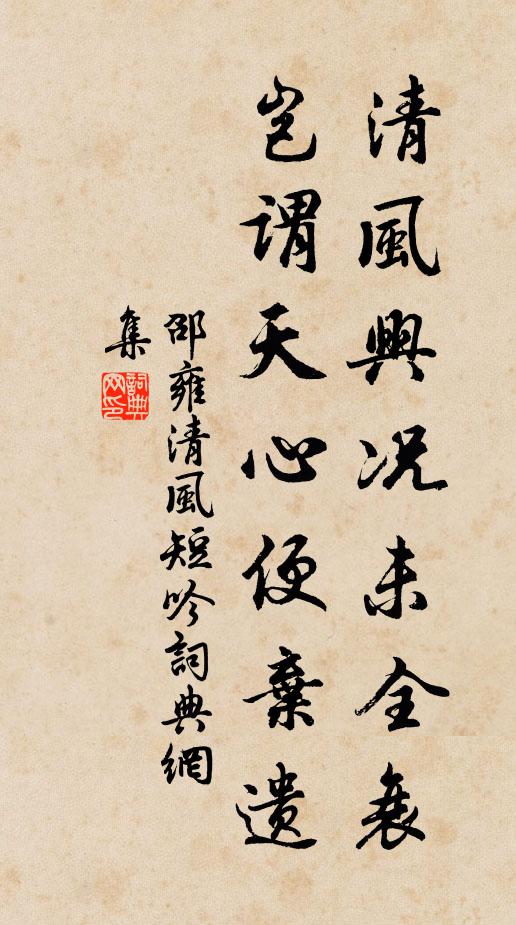 清風興况未全衰
豈謂天心便棄遺
邵雍清風短吟詞典網
集
詞典
网印